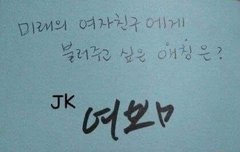 미래의 여자친구에게
불러주고 싶은 애칭은?
JK
여보